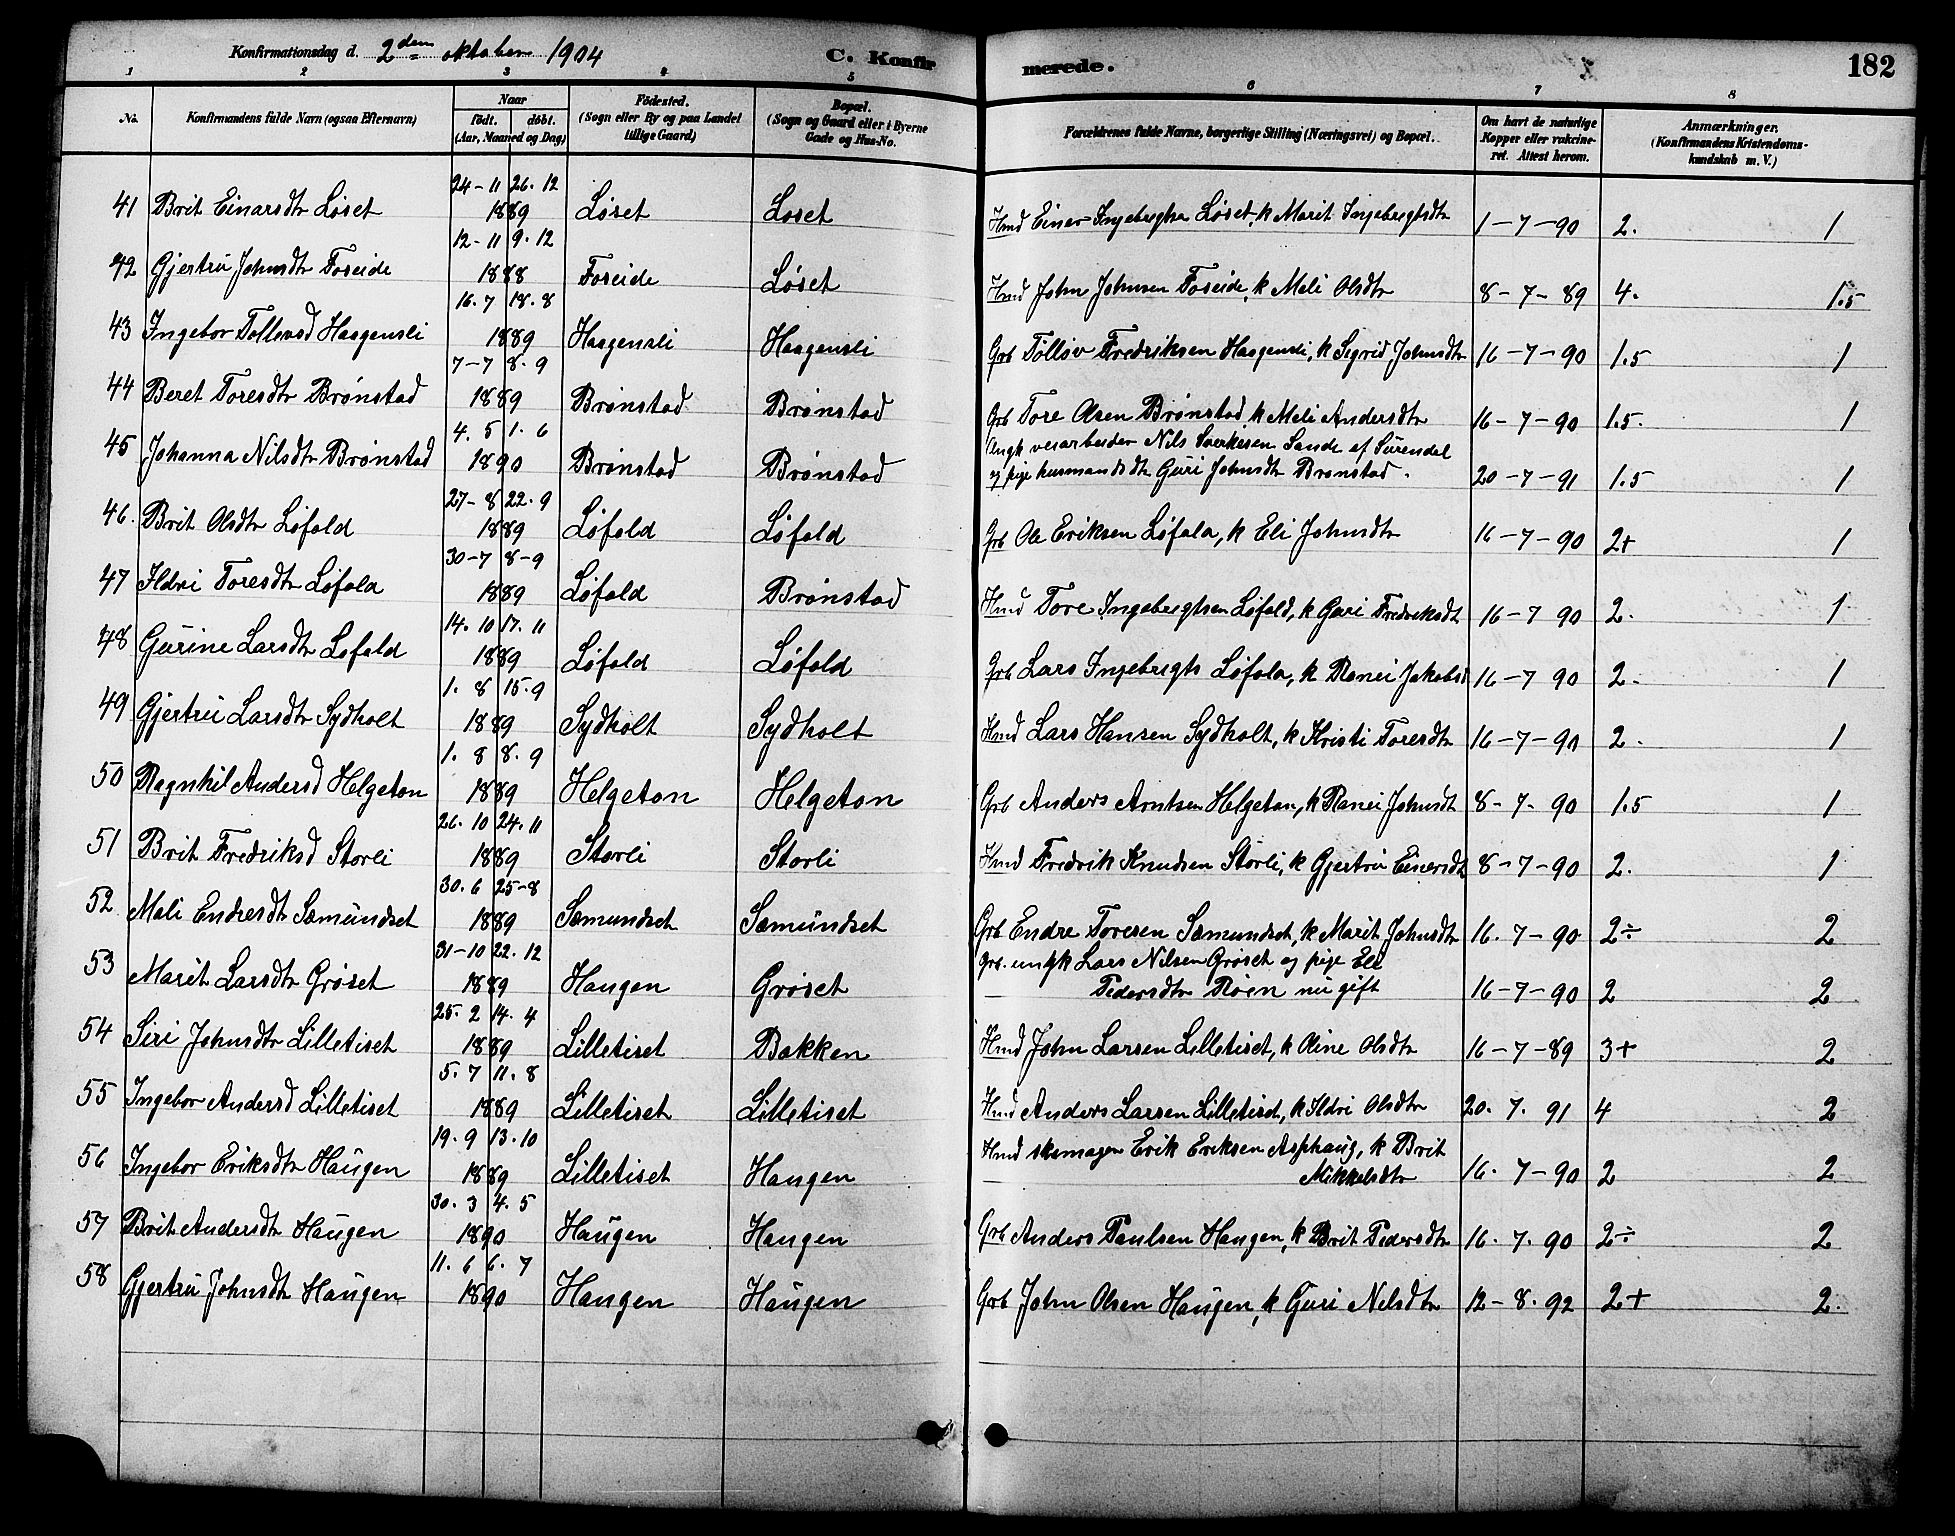 Konfirmationsdag d. 2den oktober 1904
C. Konfirmerede.
182
1 2 3 4 5 6 7 8
No.
Konfirmandens fulde Navn (ogsaa Efternavn)
Naar
födt. döbt.
(Aar, Maaned og Dag)
Födested.
(Sogn eller By og paa Landet tillige Gaard)
Bopæl.
(Sogn og Gaard eller i Byerne Gade og Hus-No.
Forældrenes fulde Navne, borgerlige Stilling (Næringsvei) og Bopæl.
Om havt de naturlige Kopper eller vakcineret. Attest herom.
Anmærkninger.
(Konfirmandens Kristendomskundskab m. V.)
41 Brit Einarsdtr Löset 24-11 26.12 1889 Löset Loset Hmd Einar Ingebrigtsn Löset, k Marit Ingebrigtsdtr 1-7-90 2. 1
42 Gjertru Johnsdtr Foseide 12-11 9.12 1888 Foseide Löset Hmd John Johnsen Foseide, k Meli Olsdtr 8-7-89 4. 1.5
43 Ingebor Tollevsd Haagensli 16.7 18.8 1889 Haagensli Haagensli Grb Tölløv Fredriksen Haagensli, k Sigrid Johnsdtr 16-7-90 1.5 1
44 Beret Toresdtr Brönstad 7-7 8.9 1889 Brönstad Brönstad Grb Tore Olsen Brönstad k Meli Andersdtr 16-7-90 1.5. 1
45 Johanna Nilsdtr Brönstad 4.5 1.6 1890 Brönstad Brönstad Ungk veiarbeider Nils Sverkesen Sande af Surendal
og pige husmandsdtr Guri Johnsdtr Brönstad. 20-7-91 1.5 1
46. Brit Olsdtr Löfald 27-8 22.9 1889 Löfald Löfald Grb Ole Eriksen Löfald, k Eli Johnsdtr 16-7-90 2+ 1
47 Ildri Toresdtr Löfald 30-7 8-9 1889 Löfald Brönstad Hmd Tore Ingebrigtsen Löfald, k Guri Fredriksdt 16-7 90 2. 1
48 Gurine Larsdtr Lofald 14.10 17.11 1889 Löfald Löfald Grb Lars Ingebrigts Löfald, k Ranei Jakobsd 16-7 90 2. 1
49 Gjertru Larsdtr Sydholt 1.8 15.9 1889 Sydholt Sydholt Hmd Lars Hansen Sydholt, k Kristi Toresdtr 16-7-90 2. 1
50 Ragnhil Andersd Helgeton 1.8 8.9 1889 Helgeton Helgeton Grb Anders Arntsen Helgeton, k Ranei Johnsdt 8-7-90 1.5 1
51 Brit Fredriksd Storli 26.10 24.11 1889 Storli Storli Hmd Fredrik Knudsen Storli, k Gjertru Einersdt 8-7-90 2. 1
52 Mali Endresdtr Sæmundset 30.6 25-8 1889 Sæmundset Sæmundset Grb Endre Toresen Sæmundset, k Marit Johnsdtr 16.7-90 2÷ 2
53 Marit Larsdtr Gröset 31-10 22.12 1889 Haugen Gröset Grb. ungk Lars Nilsen Gröset og pige Eli
Pedersdtr Röen nu gift 16-7-90 2 2
54 Siri Johnsdtr Lilletiset 25.2 14.4 1889 Lilletiset Bakken Hmd John Larsen Lilletiset, k Oline Olsdtr 16-7-89 3+ 2
55 Ingebor Andersd Lilletiset 5.7 11.8 1889 Lilletiset Lilletiset Hmd Anders Larsen Lilletiset, k Ildri Olsdtr 20.7.91 4 2
56 Ingebor Eriksdtr Haugen 19.9 13.10 1889 Lilletiset Haugen Hmd skomager Erik Eriksen Asphaug, k Brit
Mikkelsdtr 16.7-90 2 2
57 Brit Andersdtr Haugen 30.3 4.5 1890 Haugen Haugen Grb Anders Paulsen Haugen, k Brit Pedersdtr 16.7.90 2÷ 2
58 Gjertru Johnsdtr Haugen 11.6 6.7 1890 Haugen Haugen Grb John Olsen Haugen, k Guri Nilsdtr 12-8.92 2+ 2.